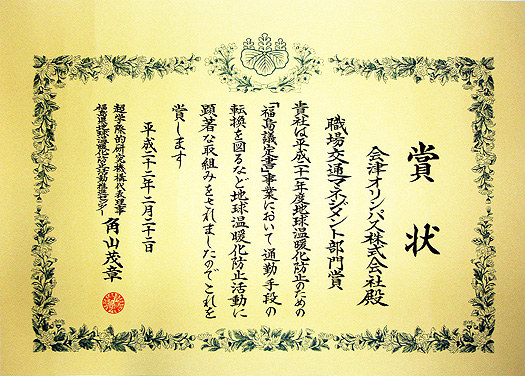 賞状
会津オリンパス株式会社殿
職場交通マネジメント部門賞
貴社は平成二十一年度地球温暖化防止のための
「福島議定書」事業において通勤手段の
転換を図るなど地球温暖化防止活動に
顕著な取組みをされましたのでこれを
賞します
平成二十二年二月二十二日
超学際的研究機構代表理事
福島県地球温暖化防止活動推進センター
角山茂章